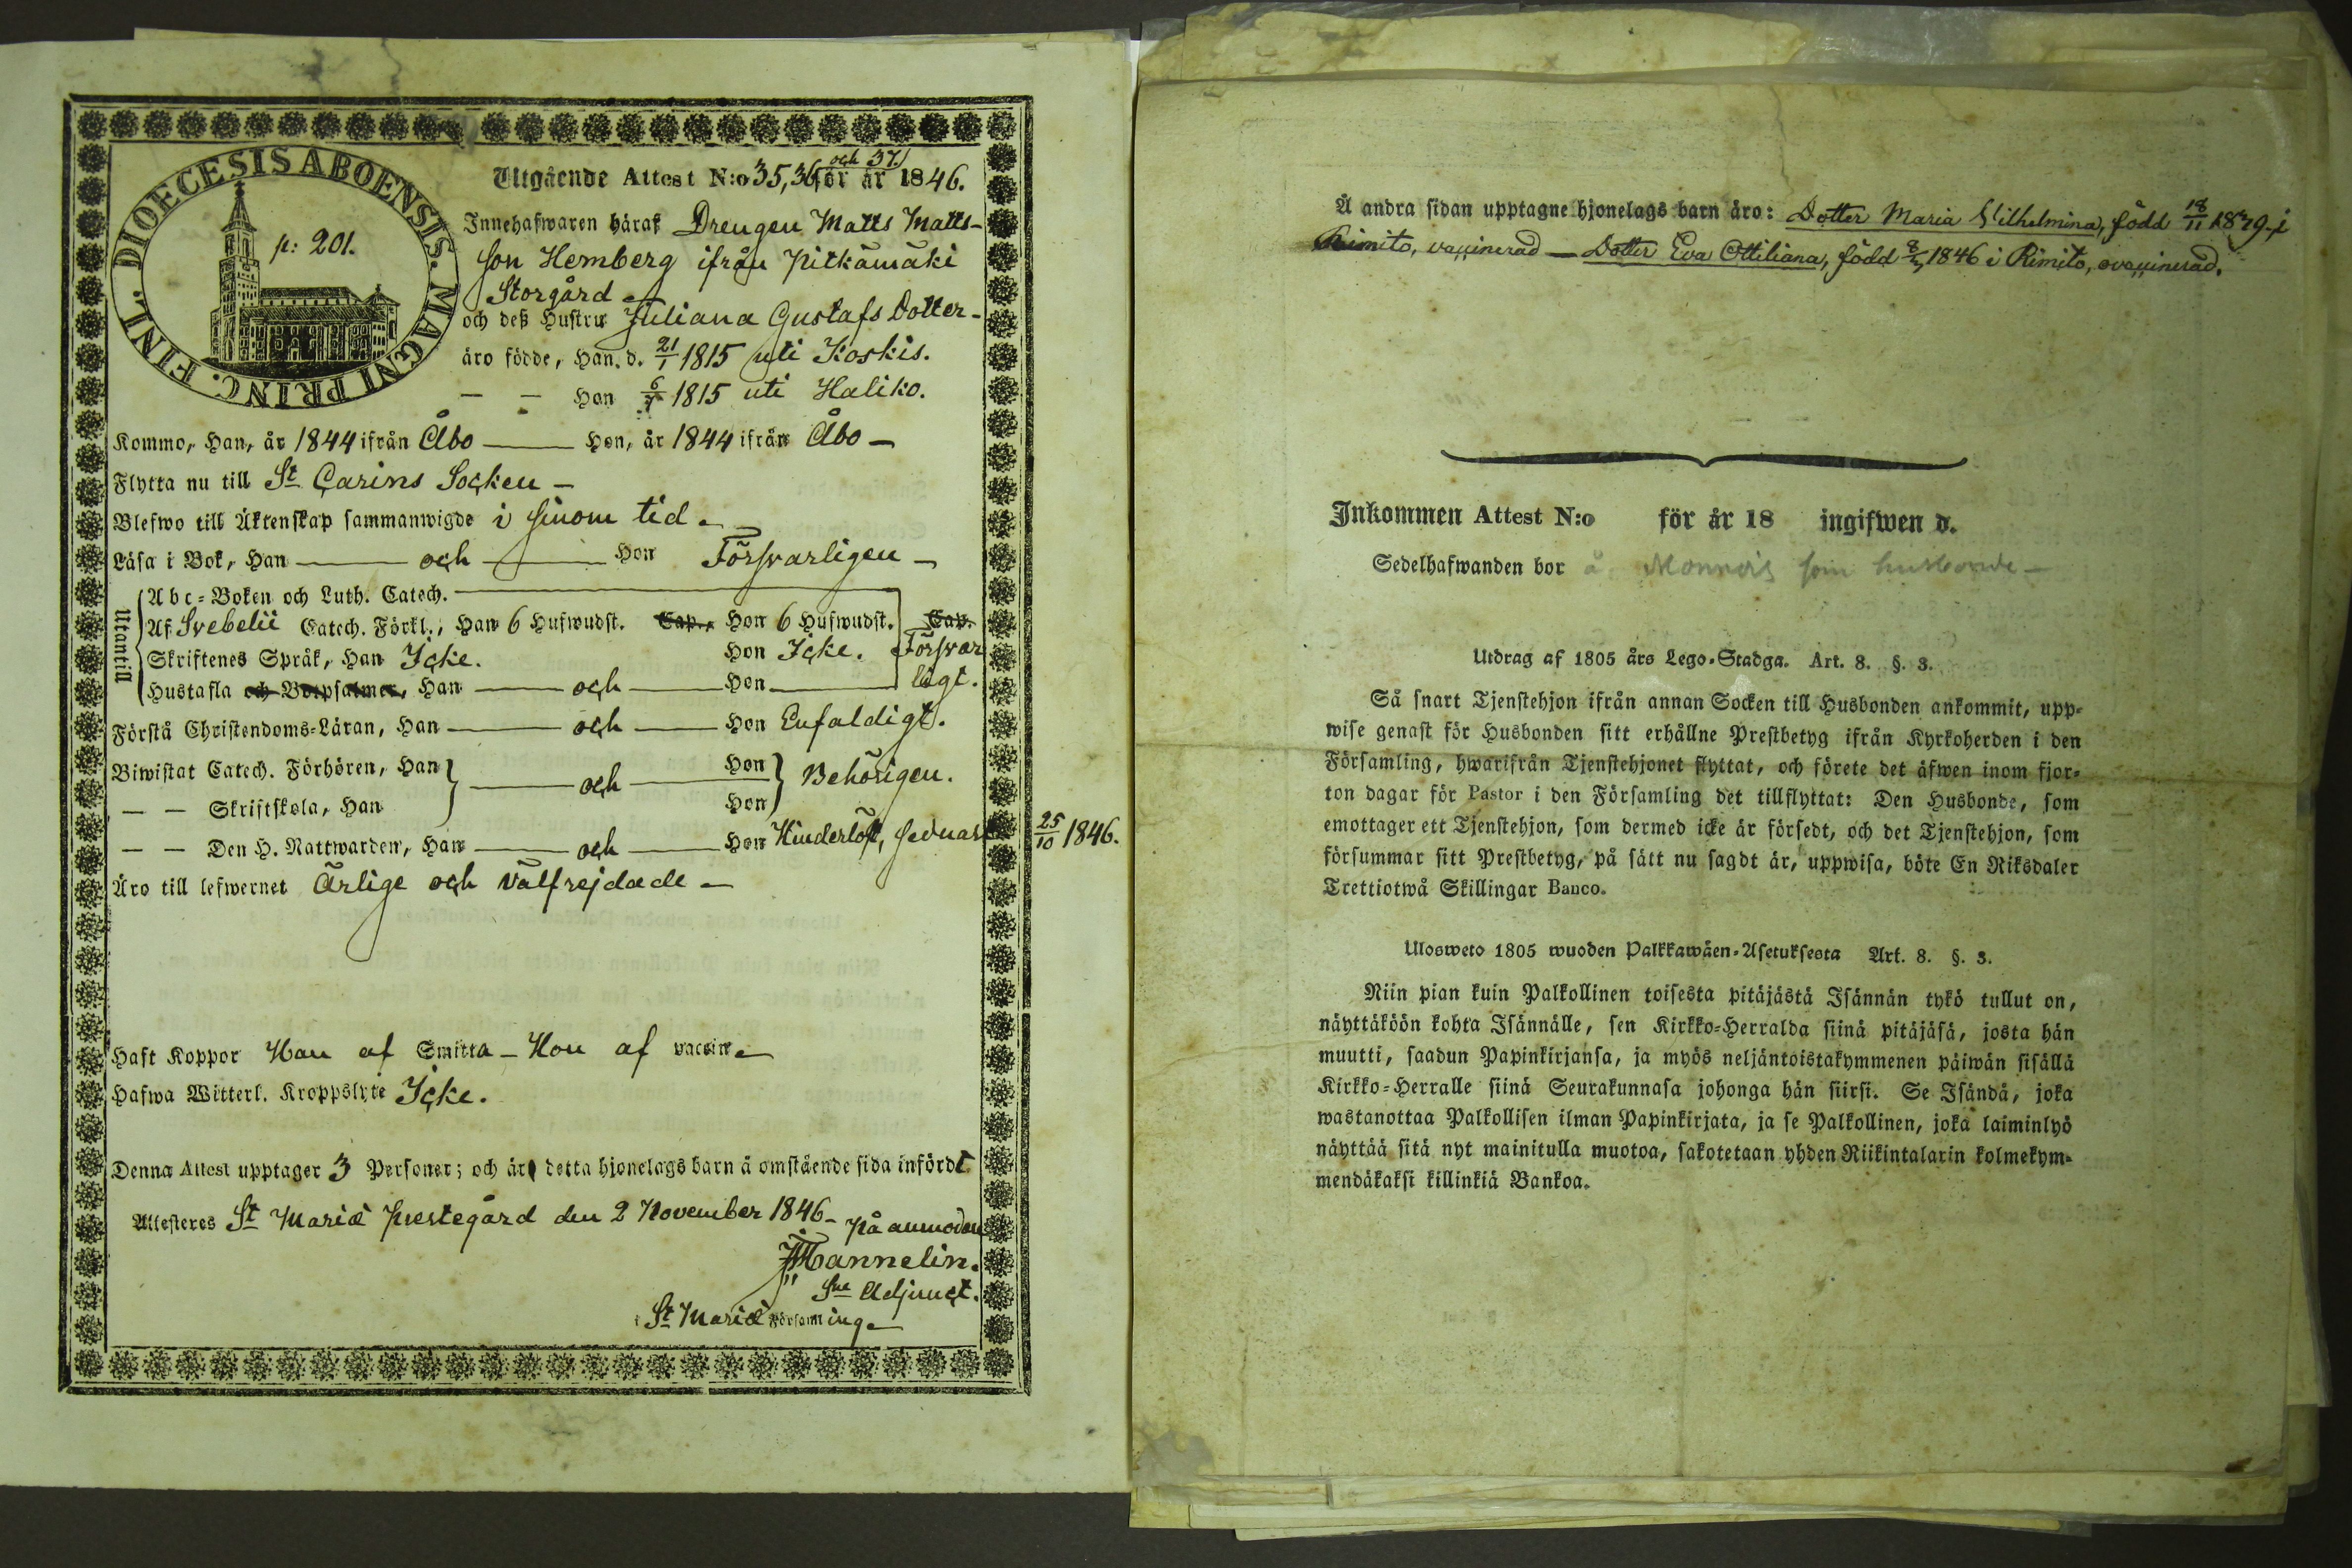 DIOECESIS ABOENSIS. MAGNI PRINC. FINL.
p: 201.
och 37.)
Utgående Attest N:o 35, 36 för år 1846.
Innehafwaren häraf Drengen Matts Matts-
son Hemberg ifrån Pitkämäki
Storgård
och deß Hustru Juliana Gustafs Dotter-
äro födde, Han. d. 21/1 1815 uti Koskis.
— — Hon 6/7 1815 uti Haliko.
Kommo, Han, år 1844 ifrån Åbo — Hon, år 1844 ifrån Åbo —
Flytta nu till St Carins Socken —
Blefwo till Äktenskap sammanwigde i sinom tid.
Läsa i Bok, Han — och — Hon Försvarligen —
Utantill
Abc-Boken och Luth. Catech. —
Af Svebelii Catech. Förkl., Han 6 Hufwudst. Cap., Hon 6 Hufwudst. Cap.
Skriftenes Språk, Han Icke. Hon Icke. Försvar
Hustafla och Botpsalmer, Han — och — Hon — ligt.
Förstå Christendoms-Läran, Han — och — Hon Enfaldigt.
Biwistat Catech. Förhören, Han — och — Hon Behörigen.
— — Skriftskola, Han Hon
— — Den H. Nattwarden, Han — och — Hon Hinderlöst, sednast 25/10 1846.
Äro till lefwernet Ärlige och välfrejdade —
Haft Koppor Han af Smitta — Hon af vaccin —
Hafwa Witterl. Kroppslyte Icke.
Denna Attest upptager 3 Personer; och är detta hjonelags barn å omstående sida infördt
Attesteres St Mariæ prestegård den 2 November 1846 — på anmodan
Mannelin.
Adjunct.
i St Mariæ Församling —
Å andra sidan upptagne hjonelags barn äro: Dotter Maria Vilhelmina, född 18/11 1839 i
Rimito, vaccinerad — Dotter Eva Ottiliana, född 8/5 1846 i Rimito, ovaccinerad.
Inkommen Attest N:o för år 18 ingifwen d.
Sedelhafwanden bor å Monnois som husbonde —
Utdrag af 1805 års Lego-Stadga. Art. 8. §. 3.
Så snart Tjenstehjon ifrån annan Socken till Husbonden ankommit, upp-
wise genast för Husbonden sitt erhållne Prestbetyg ifrån Kyrkoherden i den
Församling, hwarifrån Tjenstehjonet flyttat, och förete det äfwen inom fjor-
ton dagar för Pastor i den Församling det tillflyttat: Den Husbonde, som
emottager ett Tjenstehjon, som dermed icke är försedt, och det Tjenstehjon, som
försummar sitt Prestbetyg, på sätt nu sagdt är, uppwisa, böte En Riksdaler
Trettiotwå Skillingar Banco.
Ulosweto 1805 wuoden Palkkawäen-Asetuksesta Art. 8. §. 3.
Niin pian kuin Palkollinen toisesta pitäjästä Isännän tykö tullut on,
näyttäköön kohta Isännälle, sen Kirkko-Herralda siinä pitäjäsä, josta hän
muutti, saadun Papinkirjansa, ja myös neljäntoistakymmenen päiwän sisällä
Kirkko-Herralle siinä Seurakunnasa johonga hän siirsi. Se Isändä, joka
wastanottaa Palkollisen ilman Papinkirjata, ja se Palkollinen, joka laiminlyö
näyttää sitä nyt mainitulla muotoa, sakotetaan yhden Riikintalarin kolmekym-
mendäkaksi killinkiä Bankoa.